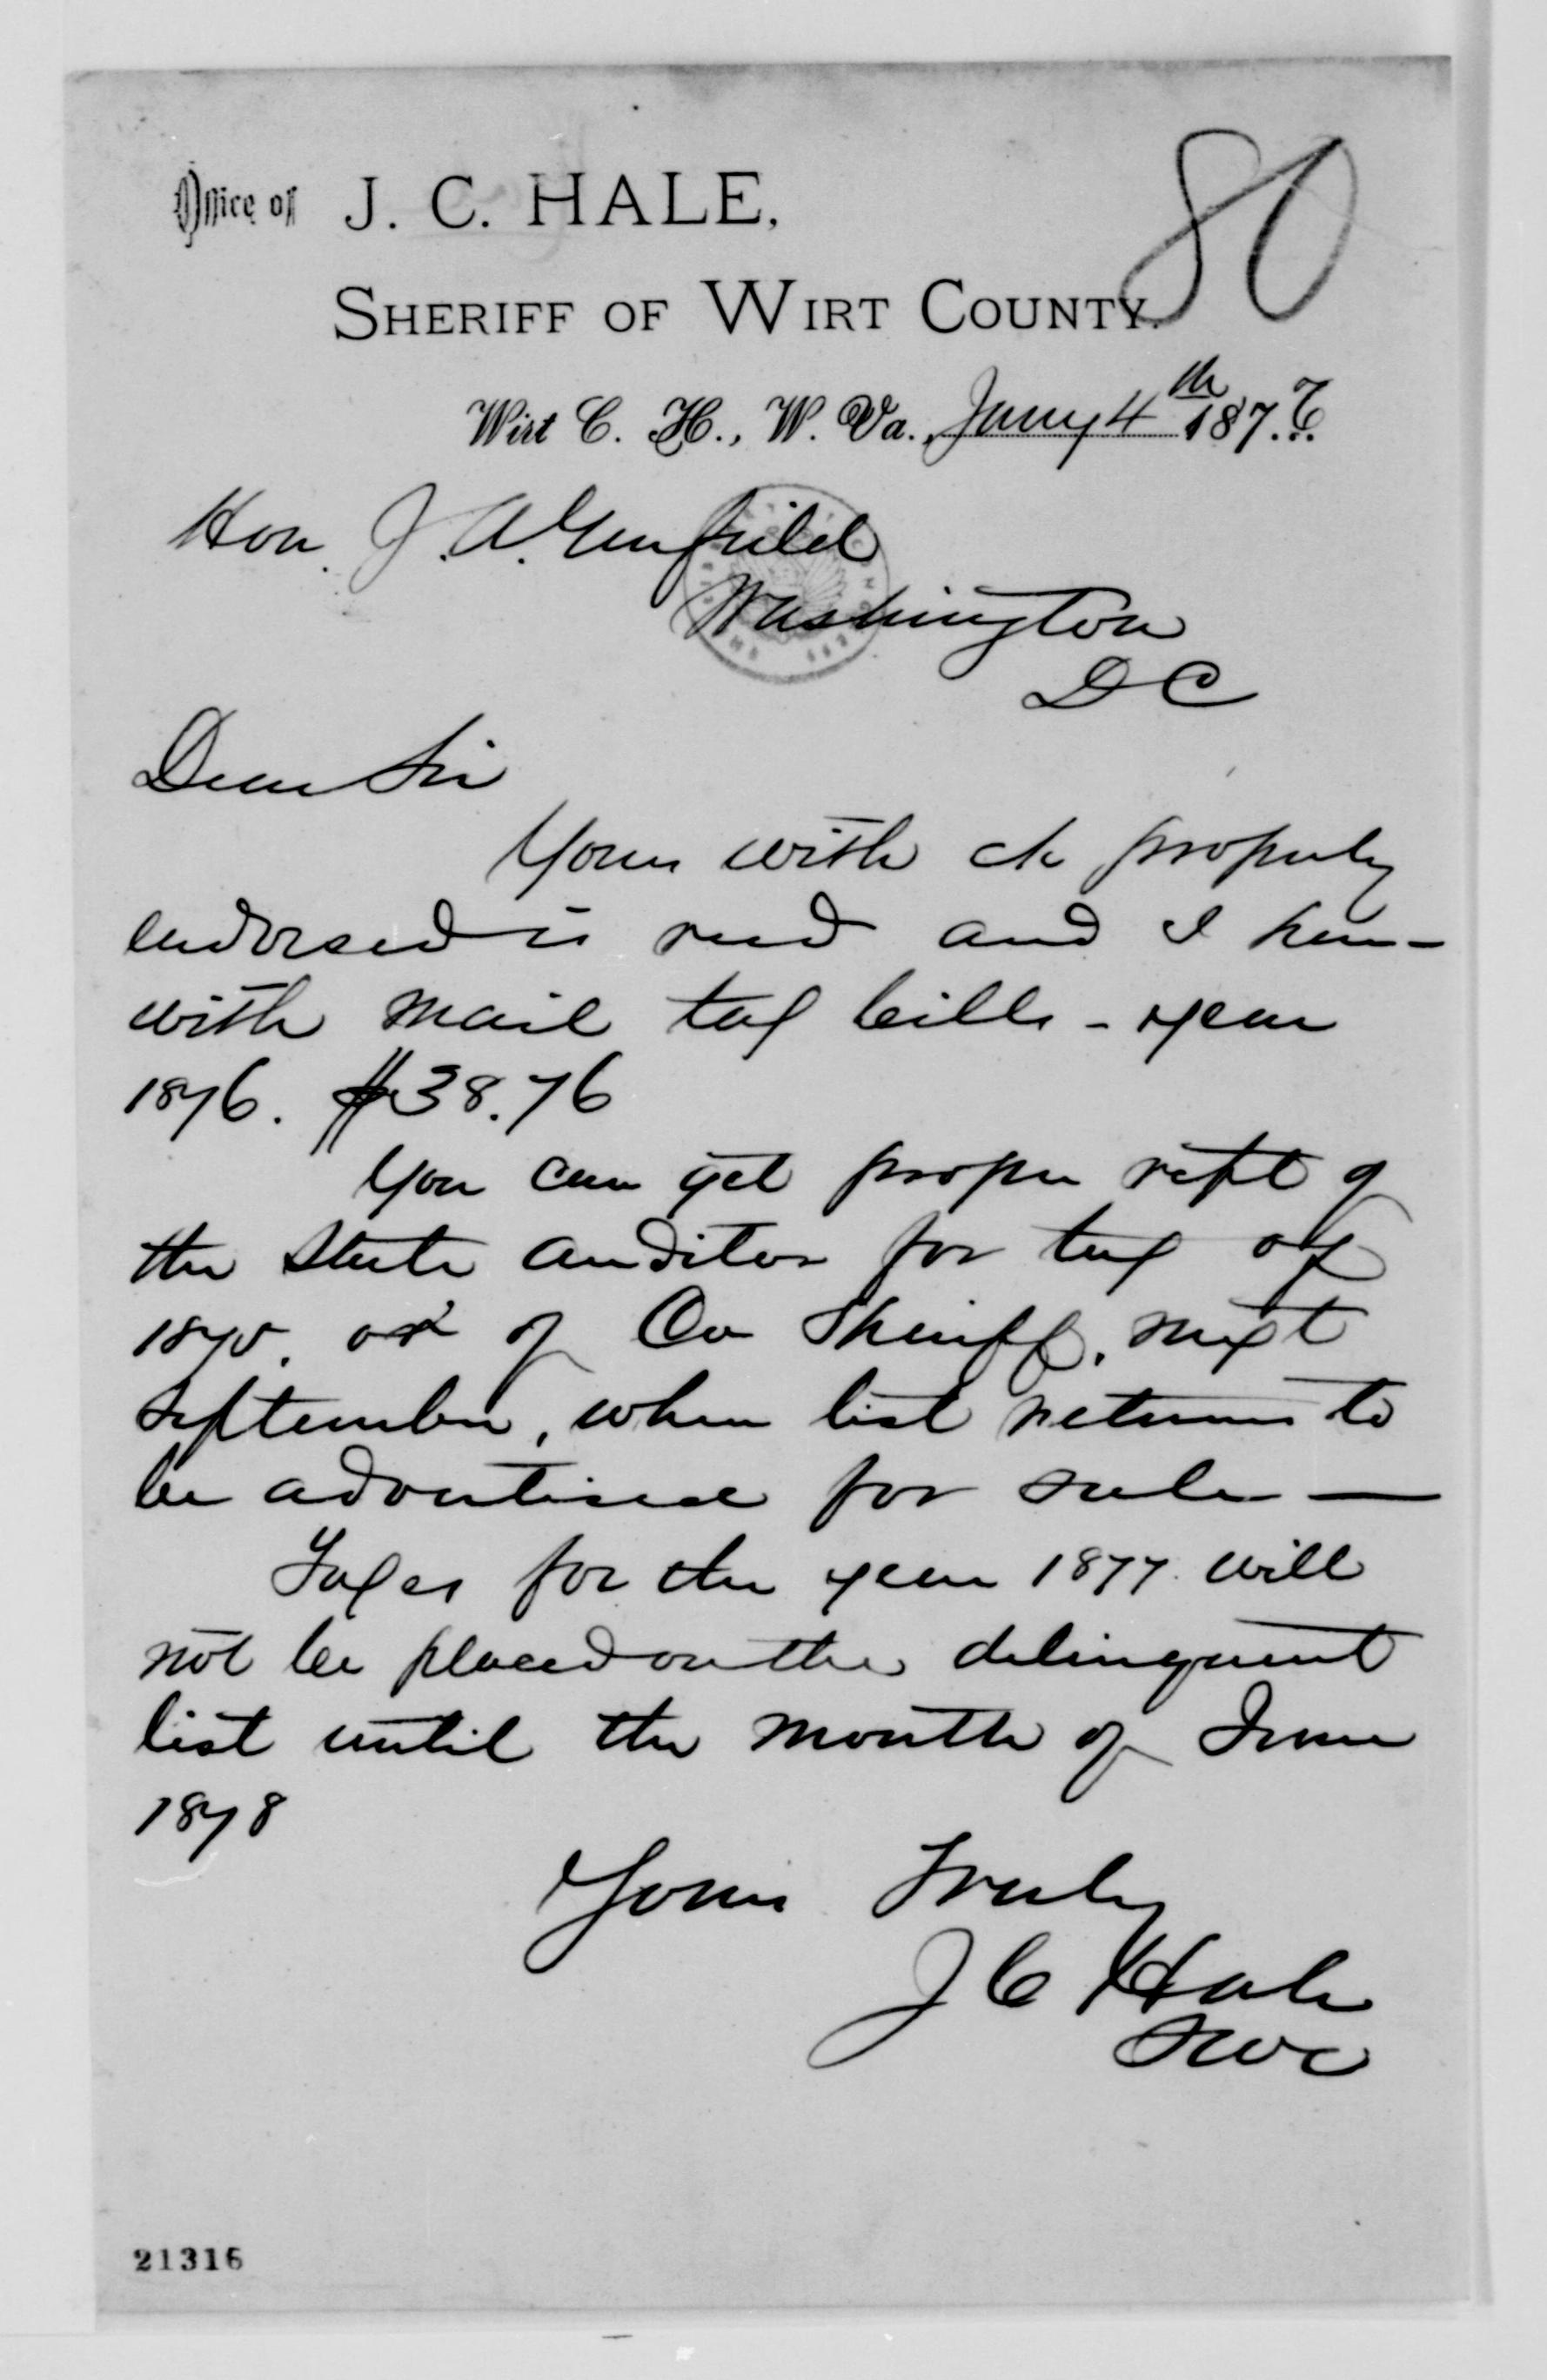 80
Office of J. C. HALE,
SHERIFF OF WIRT COUNTY.
Wirt C. H., W. Va., Jany 4th 187
Hon. J. A. Garfield
Washington
D C
Dear Sir
Yours with ck properly
endorsed is recd and I here-
with mail tax bills - year
1876. $38.76
You can get proper rcpt of
the State auditor for tax of
or of Co Sheriff, next
September, when list returns to
be advertised for sale —
Taxes for the year 1877 will
not be placed on the delinquent
list until the month of June
1878
Yours Truly
J C Hale
SWC
21316